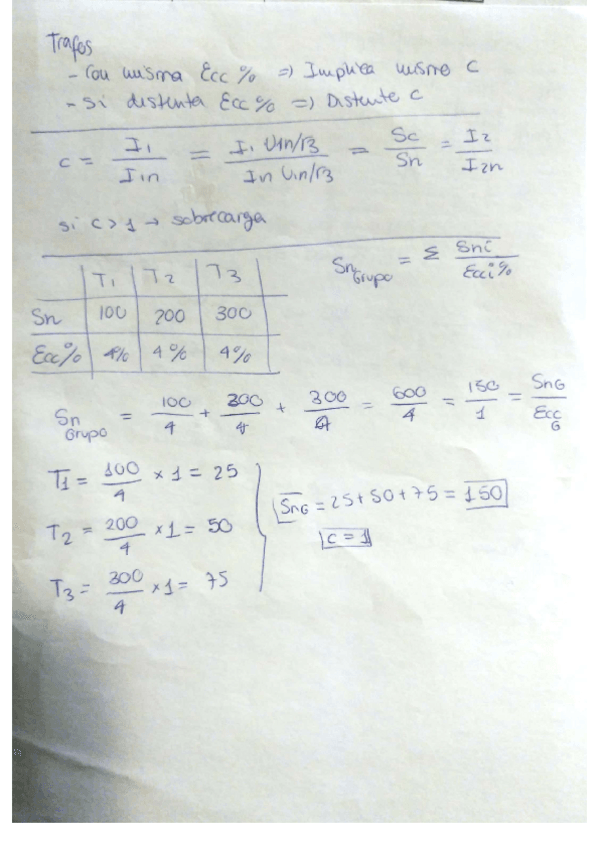 Trafos
- Con misma Ecc % => Implica mismo c
- Si distinta Ecc % => Distinto c
c = I1 / I1n = I1 U1n/√3 / In U1n/√3 = Sc / Sn = I2 / I2n
si c > 1 → sobrecarga
T1 T2 T3
Sn 100 200 300
Ecc% 4% 4% 4%
Sn Grupo = Σ Sni / Ecci%
Sn Grupo = 100/4 + 200/4 + 300/4 = 600/4 = 150/1 = SnG / Ecc G
T1 = 100/4 × 1 = 25
T2 = 200/4 × 1 = 50
T3 = 300/4 × 1 = 75
SnG = 25 + 50 + 75 = 150
c = 1